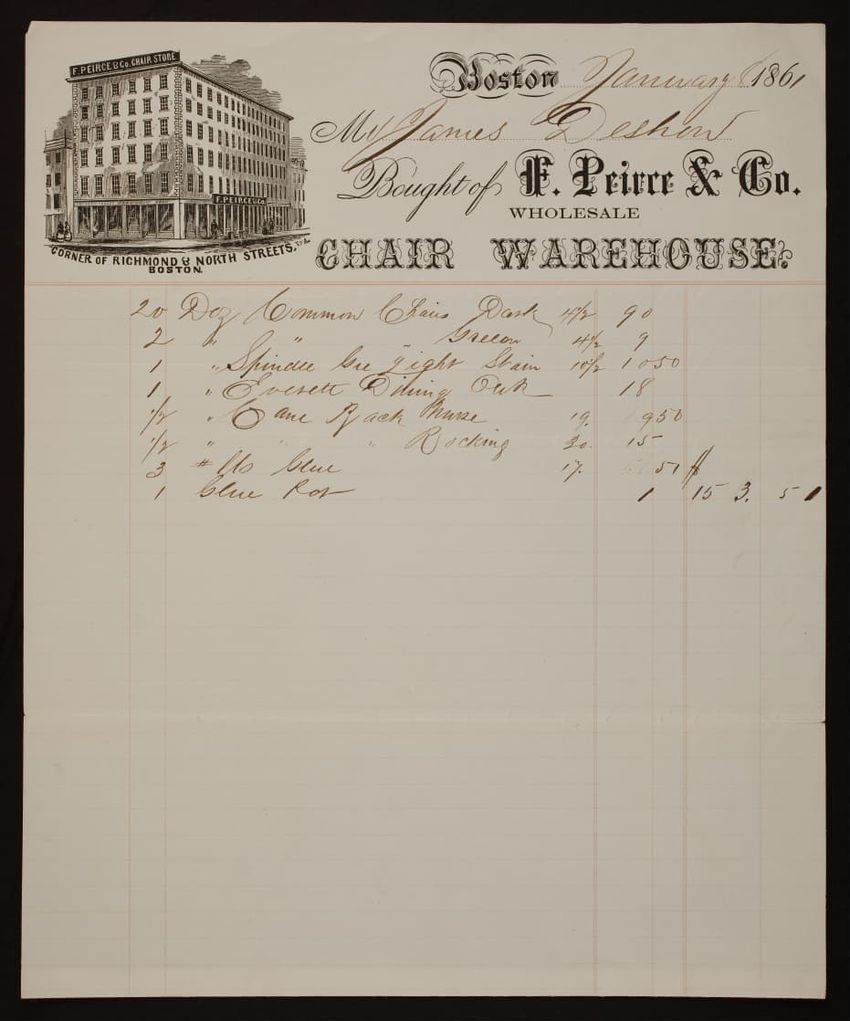 F. PEIRCE & Co. CHAIR STORE
F. PEIRCE & Co.
CORNER OF RICHMOND & NORTH STREETS.
BOSTON.
Boston January 1861
Mr James
Bought of F. Peirce & Co.
WHOLESALE
CHAIR WAREHOUSE.
20 Doz Common Chairs Dark 4/2 90
2 " " Green 4/2 9
1 " Spindle Gre Light Stain 10/2 10 50
1 " Everett Dining Oak 18
1/2 " Cane Back Nurse 19. 9 50
1/2 " " " Rocking 30. 15
3 # Us Glue 17. 51 $
1 Glue Pot 1 153. 51